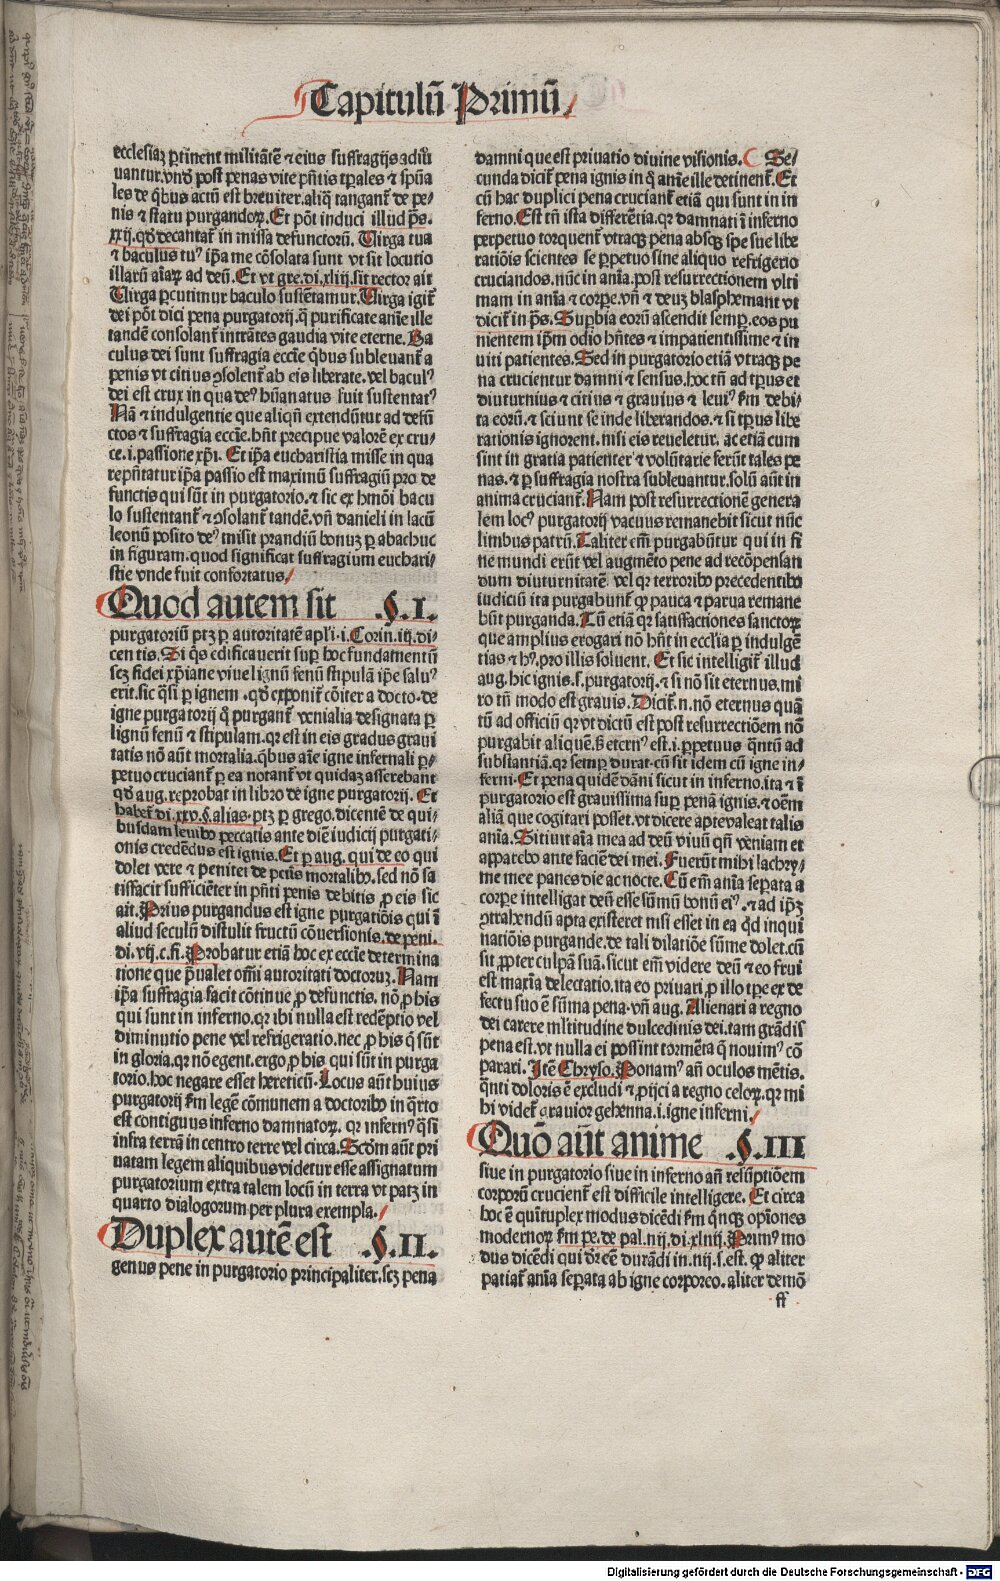 Capitulū Primū
ecclesiaʒ ꝑtinent militātē ⁊ eius suffragijs ꝯdiu
uantur. vnð post penas vite pn̄tis tꝑales ⁊ spūa
les de q̄bus actū est breuiter. aliq̄ tangant᷑ de pe⸗
nis ⁊ statu purgandoꝝ. Et pōt induci illud ps̄.
xxij. qð decantat᷑ in missa defunctorū. Uirga tua
⁊ baculus tuꝰ ip̄a me cōsolata sunt vt sit locutio
illarū aīaꝝ ad deū. Et vt gre. di. xliij. sit rector ait
Uirga ꝑcutimur baculo sustētamur. Uirga igit᷑
dei pōt dici pena purgatorij. q̄ purificate anīe ille
tandē consolant᷑ intrātes gaudia vite eterne. Ba
culus dei sunt suffragia eccīe q̄bus subleuant᷑ a
penis vt citius ꝯsolent᷑ ab eis liberate. vel baculꝰ
dei est crux in qua deꝰ hūanatus fuit sustentatꝰ
Nā ⁊ indulgentie que aliqn̄ extendūtur ad defū
ctos ⁊ suffragia eccīe. hn̄t precipue valorē ex cru⸗
ce. i. passione xp̄i. Et ip̄a eucharistia misse in qua
repn̄tatur ip̄a passio est maximū suffragiū pro de
functis qui sūt in purgatorio. ⁊ sic ex hmōi bacu
lo sustentant᷑ ⁊ ꝯsolant᷑ tandē. vn̄ danieli in lacū
leonū posito deꝰ misit prandiū bonuʒ ꝑ abachuc
in figuram. quod significat suffragium euchari⸗
stie vnde fuit confortatus
Quod autem sit §. I.
purgatoriū ptʒ ꝑ autoritatē apl̄i. i. Corin. iij. di⸗
centis. Si q̄s edificauerit suꝑ hoc fundamentū
scʒ fidei xp̄iane viue lignū fenū stipulā ip̄e saluꝰ
erit. sic q̄si ꝑ ignem. qð exponit᷑ cōiter a docto. de
igne purgatorij q̄ purgant᷑ venialia designata ꝑ
lignū fenū ⁊ stipulam. qr est in eis gradus graui
tatis nō aūt mortalia. q̄bus aīe igne infernali ꝑ⸗
petuo cruciant᷑ ꝑ ea notant᷑ vt quidaʒ asserebant
qð aug. reprobat in libro de igne purgatorij. Et
habet᷑ di. xxv. §. alias. ptʒ ꝑ grego. dicentē de qui⸗
busdam leuibꝰ peccatis ante diē iudicij purgati⸗
onis credēdus est ignis. Et ꝑ aug. qui de eo qui
dolet vere ⁊ penitet de pctīs mortalibꝰ. sed nō sa
tisfacit sufficiēter in pn̄ti penis debitis ꝓ eis sic
ait. Prius purgandus est igne purgatiōis qui ī
aliud seculū distulit fructū cōuersionis. de peni.
di. vij. c. fi. Probatur etiā hoc ex eccīe determina
tione que p̄ualet om̄i autoritati doctoruʒ. Nam
ip̄a suffragia facit cōtinue ꝓ defunctis. nō ꝓ his
qui sunt in inferno. qr ibi nulla est redēptio vel
diminutio pene vel refrigeratio. nec ꝓ his q̄ sūt
in gloria. qr nō egent. ergo ꝓ his qui sūt in purga
torio. hoc negare esset hereticū. Locus aūt huius
purgatorij ẜm legē cōmunem a doctoribꝰ in q̄rto
est contiguus inferno damnatoꝝ. qr infernꝰ q̄si
infra terrā in centro terre vel circa. Scðm aūt pri
uatam legem aliquibus videtur esse assignatum
purgatorium extra talem locū in terra vt patʒ in
quarto dialogorum per plura exempla.
Duplex autē est §. II.
genus pene in purgatorio principaliter. scʒ pena
damni que est priuatio diuine visionis. Se⸗
cunda dicit᷑ pena ignis in q̄ anīe ille detinent᷑. Et
cū hac duplici pena cruciant᷑ etiā qui sunt in in
ferno. Est tn̄ ista differētia. qr damnati ī inferno
perpetuo torquent᷑ vtraqʒ pena absqʒ spe sue libe
ratiōis scientes se ꝑpetuo sine aliquo refrigerio
cruciandos. nūc in anīa. post resurrectionem vlti
mam in anīa ⁊ corꝑe. vn̄ ⁊ deuʒ blasphemant vt
dicit᷑ in ps̄. Suꝑbia eorū ascendit semꝑ. eos pu
nientem ip̄m odio hn̄tes ⁊ impatientissime ⁊ in
uiti patientes. Sed in purgatorio etiā vtraqʒ pe
na crucientur damni ⁊ sensus. hoc tn̄ ad tp̄us et
diuturnius ⁊ citius ⁊ grauius ⁊ leuiꝰ ẜm debi⸗
ta eorū. ⁊ sciunt se inde liberandos. ⁊ si tp̄us libe
rationis ignorent. nisi eis reueletur. ac etiā cum
sint in gratia patienter ⁊ volūtarie ferūt tales pe
nas. ⁊ ꝑ suffragia nostra subleuantur. solū aūt in
anima cruciant᷑. Nam post resurrectionē genera
lem locꝰ purgatorij vacuus remanebit sicut nūc
limbus patrū. Taliter em̄ purgabūtur qui in fi
ne mundi erūt vel augmēto pene ad recōpensan
dum diuturnitatē vel qr terroribꝰ precedentibꝰ
iudiciū ita purgabunt᷑ ꝙ pauca ⁊ parua remane
būt purganda. Tū etiā qr satisfactiones sanctoꝝ
que amplius erogari nō hn̄t in ecclīa ꝑ indulgē
tias ⁊ hꝰ. pro illis soluent. Et sic intelligit᷑ illud
aug. hic ignis. s. purgatorij. ⁊ si nō sit eternus. mi
ro tn̄ modo est grauis. Dicit᷑. n. nō eternus quā
tū ad officiū qr vt dictū est post resurrectiōem nō
purgabit aliquē. ß eternꝰ est. i. ꝑpetuus q̄ntū ad
substantiā. qr semꝑ durat. cū sit idem cū igne in⸗
ferni. Et pena quidē dāni sicut in inferno. ita ⁊ ī
purgatorio est grauissima suꝑ penā ignis. ⁊ oēm
aliā que cogitari posset. vt dicere apte valeat talis
anīa. Sitiuit aīa mea ad deū viuū qn̄ veniam et
apparebo ante faciē dei mei. Fuerūt mihi lachry⸗
me mee panes die ac nocte. Cū em̄ anīa seꝑata a
corꝑe intelligat deū esse sūmū bonū eiꝰ. ⁊ ad ip̄ʒ
ꝯtrahendū apta existeret nisi esset in ea qð inqui
natiōis purgande. de tali dilatiōe sūme dolet. cū
sit ꝓpter culpā suā. sicut em̄ videre deū ⁊ eo frui
est maxīa delectatio. ita eo priuari ꝓ illo tꝑe ex de
fectu suo ē sūma pena. vn̄ aug. Alienari a regno
dei carere mltitudine dulcedinis dei. tam grādis
pena est. vt nulla ei possint tormēta q̄ nouimꝰ cō
parari. Itē Chryso. Ponamꝰ an̄ oculos mētis.
q̄nti doloris ē excludi ⁊ ꝓijci a regno celoꝝ. qr mi
hi videt᷑ grauior gehenna. i. igne inferni.
Quō aūt anime §. III
siue in purgatorio siue in inferno an̄ resūptiōem
corporū crucient᷑ est difficile intelligere. Et circa
hoc ē quītuplex modus dicēdi ẜm q̄nqʒ opīones
modernoꝝ ẜm pe. de pal. iiij. di. xliiij. Primꝰ mo
dus dicēdi qui dr̄ eē durādi in. iiij. s. est. ꝙ aliter
patiat᷑ anīa seꝑata ab igne corporeo. aliter demō
ff
Digitalisierung gefördert durch die Deutsche Forschungsgemeinschaft - DFG